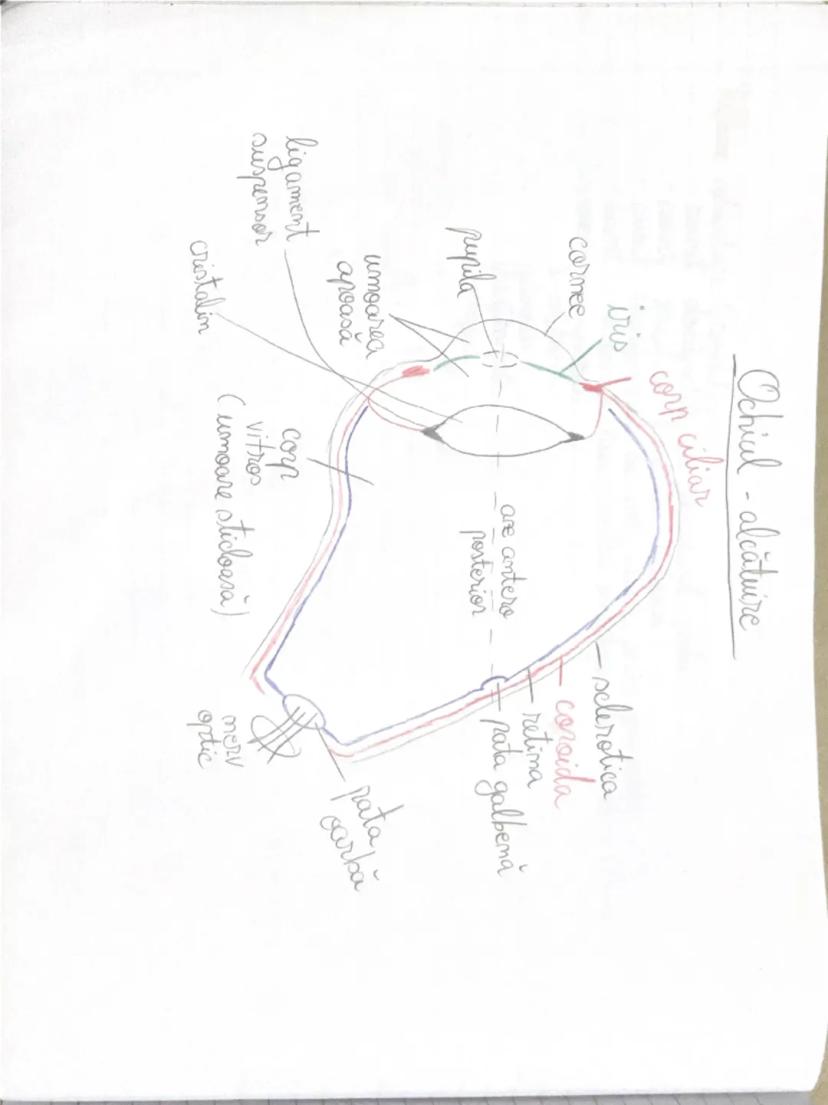 Ochiul - alcătuire
corp ciliar
iris
cornee
pupila
umoarea
apoasă
ligament
suspensor
cristalin
sclerotica
coroida
retina
pata galbenă
axe antero
posterior
corp
vitros
(umoare sticloasă)
nerv
optic
pata
oarbă